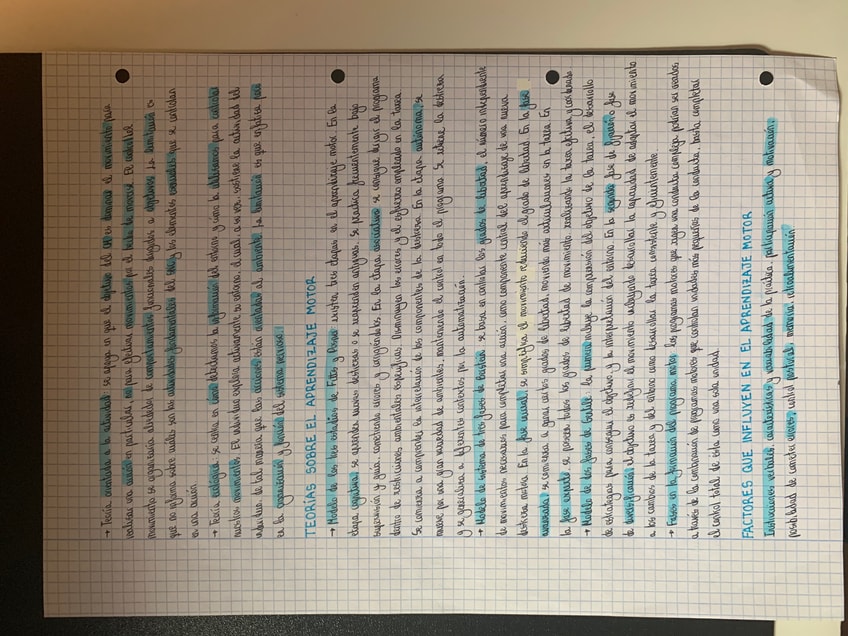 → Teoría orientada a la actividad: se apoya en que el objetivo del SNC es dominar el movimiento para
realizar una acción en particular, no para efectuar movimientos por el hecho de moverse. El control del
movimiento se organizaría alrededor de comportamientos funcionales dirigidos a objetivos. La limitación es
que no informa sobre cuáles son las actividades fundamentales del SNC y los elementos esenciales que se controlan
en una acción.
→ Teoría ecológica: se centra en cómo detectamos la información del entorno y cómo la utilizamos para controlar
nuestros movimientos. El individuo explora activamente su entorno, el cual, a su vez, sostiene la actividad del
individuo de tal manera que las acciones están orientadas al ambiente. La limitación es que enfatiza poco
en la organización y función del sistema nervioso.
TEORÍAS SOBRE EL APRENDIZAJE MOTOR
→ Modelo de los tres estadios de Fitts y Posner: existen tres etapas en el aprendizaje motor. En la
etapa cognitiva se aprenden nuevas destrezas o se reaprenden antiguas. Se practica frecuentemente bajo
supervisión y guía, cometiendo errores y corrigiéndolos. En la etapa asociativa se consigue elegir el programa
dentro de restricciones ambientales específicas. Disminuyen los errores y el esfuerzo empleado en la tarea.
Se comienza a comprender la interrelación de los componentes de la destreza. En la etapa autónoma, se
mueve por una gran variedad de ambientes, manteniendo el control en todo el programa. Se retiene la destreza
y se generaliza a diferentes contextos por la automatización.
→ Modelo de sistema de tres fases de Bernstein: se basa en controlar los grados de libertad, el número independiente
de movimientos necesarios para completar una acción, como componente central del aprendizaje de una nueva
destreza motriz. En la fase inicial, se simplifica el movimiento reduciendo el grado de libertad. En la fase
avanzada, se comienza a ganar ciertos grados de libertad, moviendo más articulaciones en la tarea. En
la fase experta se poseen todos los grados de libertad de movimiento, realizando la tarea efectiva y coordinada
→ Modelo de dos fases de Gentile: la primera incluye la comprensión del objetivo de la tarea, el desarrollo
de estrategias para conseguir el objetivo y la interpretación del entorno. En la segunda fase de fijación o fase
de diversificación, el objetivo es redefinir el movimiento incluyendo desarrollar la capacidad de adaptar el movimiento
a los cambios de la tarea y del entorno como desarrollar la tarea consistente y eficientemente.
→ Fases en la formación del programa motor: los programas motores que rigen una conducta compleja podrían ser creados
a través de la combinación de programas motores que controlan unidades más pequeñas de la conducta, hasta completar
el control total de ésta como una sola unidad.
FACTORES QUE INFLUYEN EN EL APRENDIZAJE MOTOR
Instrucciones verbales, características y variabilidad de la práctica, participación activa y motivación,
posibilidad de cometer errores, control postural, memoria, retroalimentación